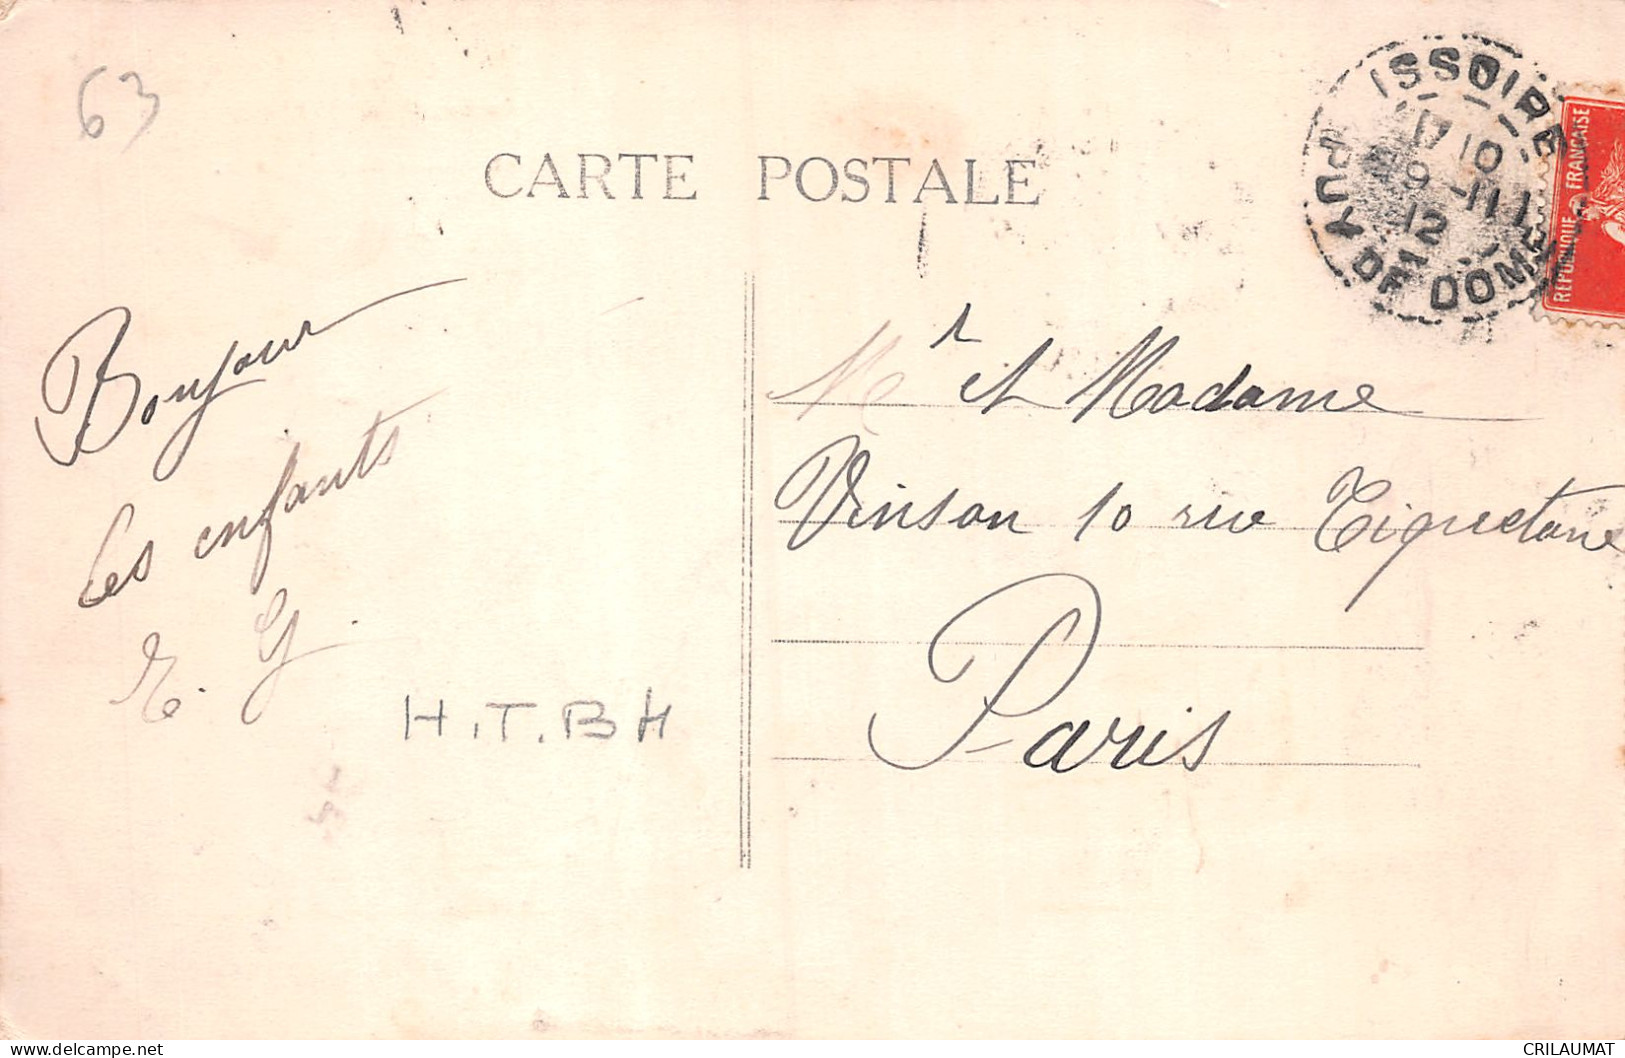 63
CARTE POSTALE
ISSOIRE
17 10
9 -III
12
PUY DE DOME
REPUBLIQUE FRANÇAISE
Bonjour
Les enfants
E. G.
H.T.BH
Mr et Madame
Vinson 10 rue Tiquetone
Paris
CRILAUMAT